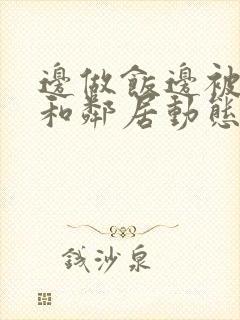 邊做飯邊被
和鄰居動態
錢沙泉